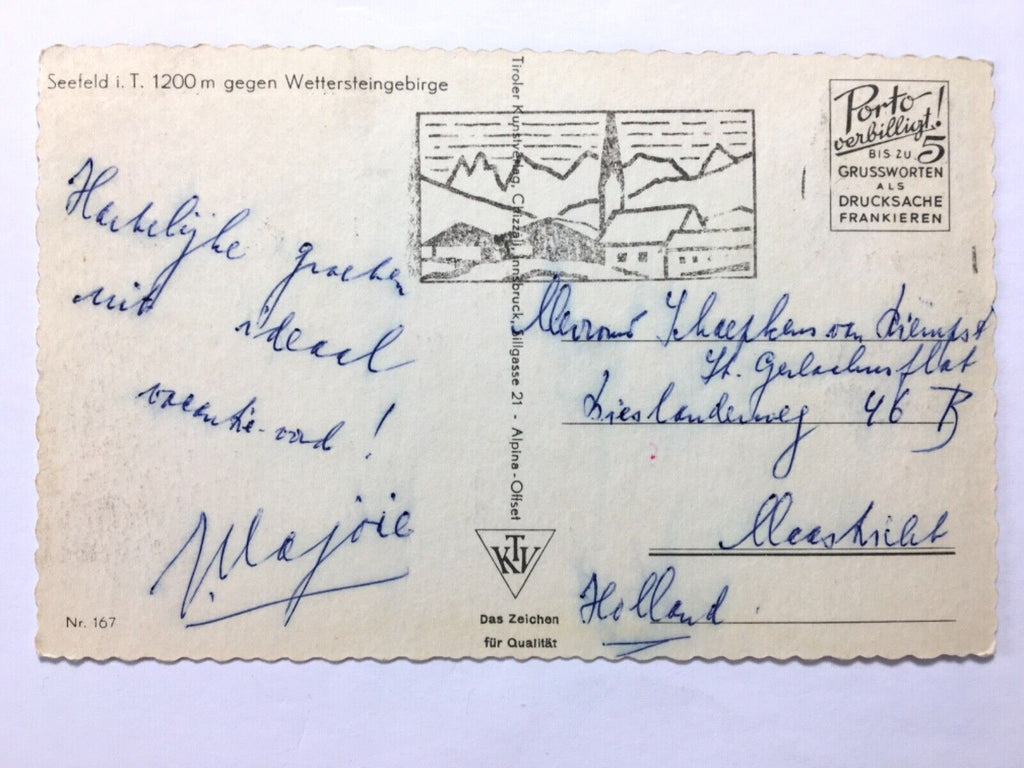 Seefeld i. T. 1200 m gegen Wettersteingebirge
Hartelijke groeten
uit ideaal
vacantie-oord!
Majoie
Nr. 167
Tiroler Kunstverlag, Chizzali, Innsbruck, Sillgasse 21 - Alpina - Offset
KTV
Das Zeichen
für Qualität
Porto
verbilligt!
BIS ZU 5
GRUSSWORTEN
ALS
DRUCKSACHE
FRANKIEREN
Mevrouw Schaepkens van Riempst
St. Gerlachusflat
46 B
Maastricht
Holland